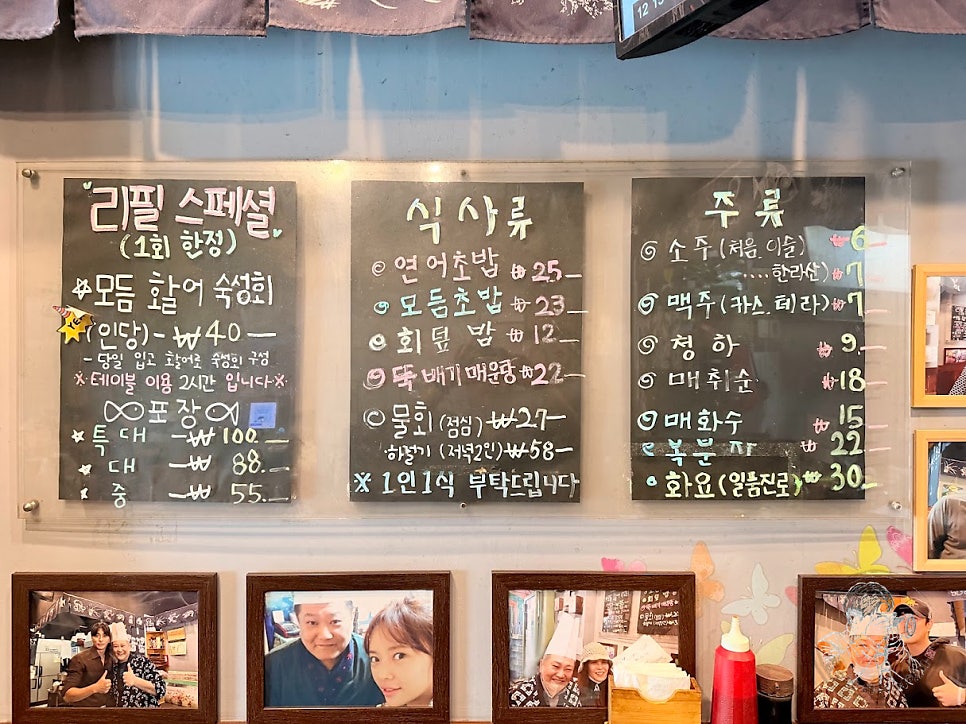 리필 스페셜
(1회 한정)
☆모듬 활어 숙성회
(인당) - ₩40 —
- 당일 입고 활어로 숙성회 구성
※테이블 이용 2시간 입니다※
포장
☆특대 - ₩ 100.—
☆ 대 - ₩ 88.—
☆ 중 - ₩ 55.—
식사류
◎연어초밥 ₩25—
◎모듬초밥 ₩23—
◎회덮밥 ₩12—
◎뚝배기매운탕 ₩22—
◎물회(점심) ₩27—
하절기(저녁2인) ₩58—
※ 1인1식 부탁드립니다
주류
◎소주(처음.이슬) ₩6—
....한라산) ₩7—
◎맥주(카스.테라) ₩7—
◎청하 ₩9—
◎매취순 ₩18—
◎매화수 15—
복분자 ₩22—
화요(일품진로) ₩30—